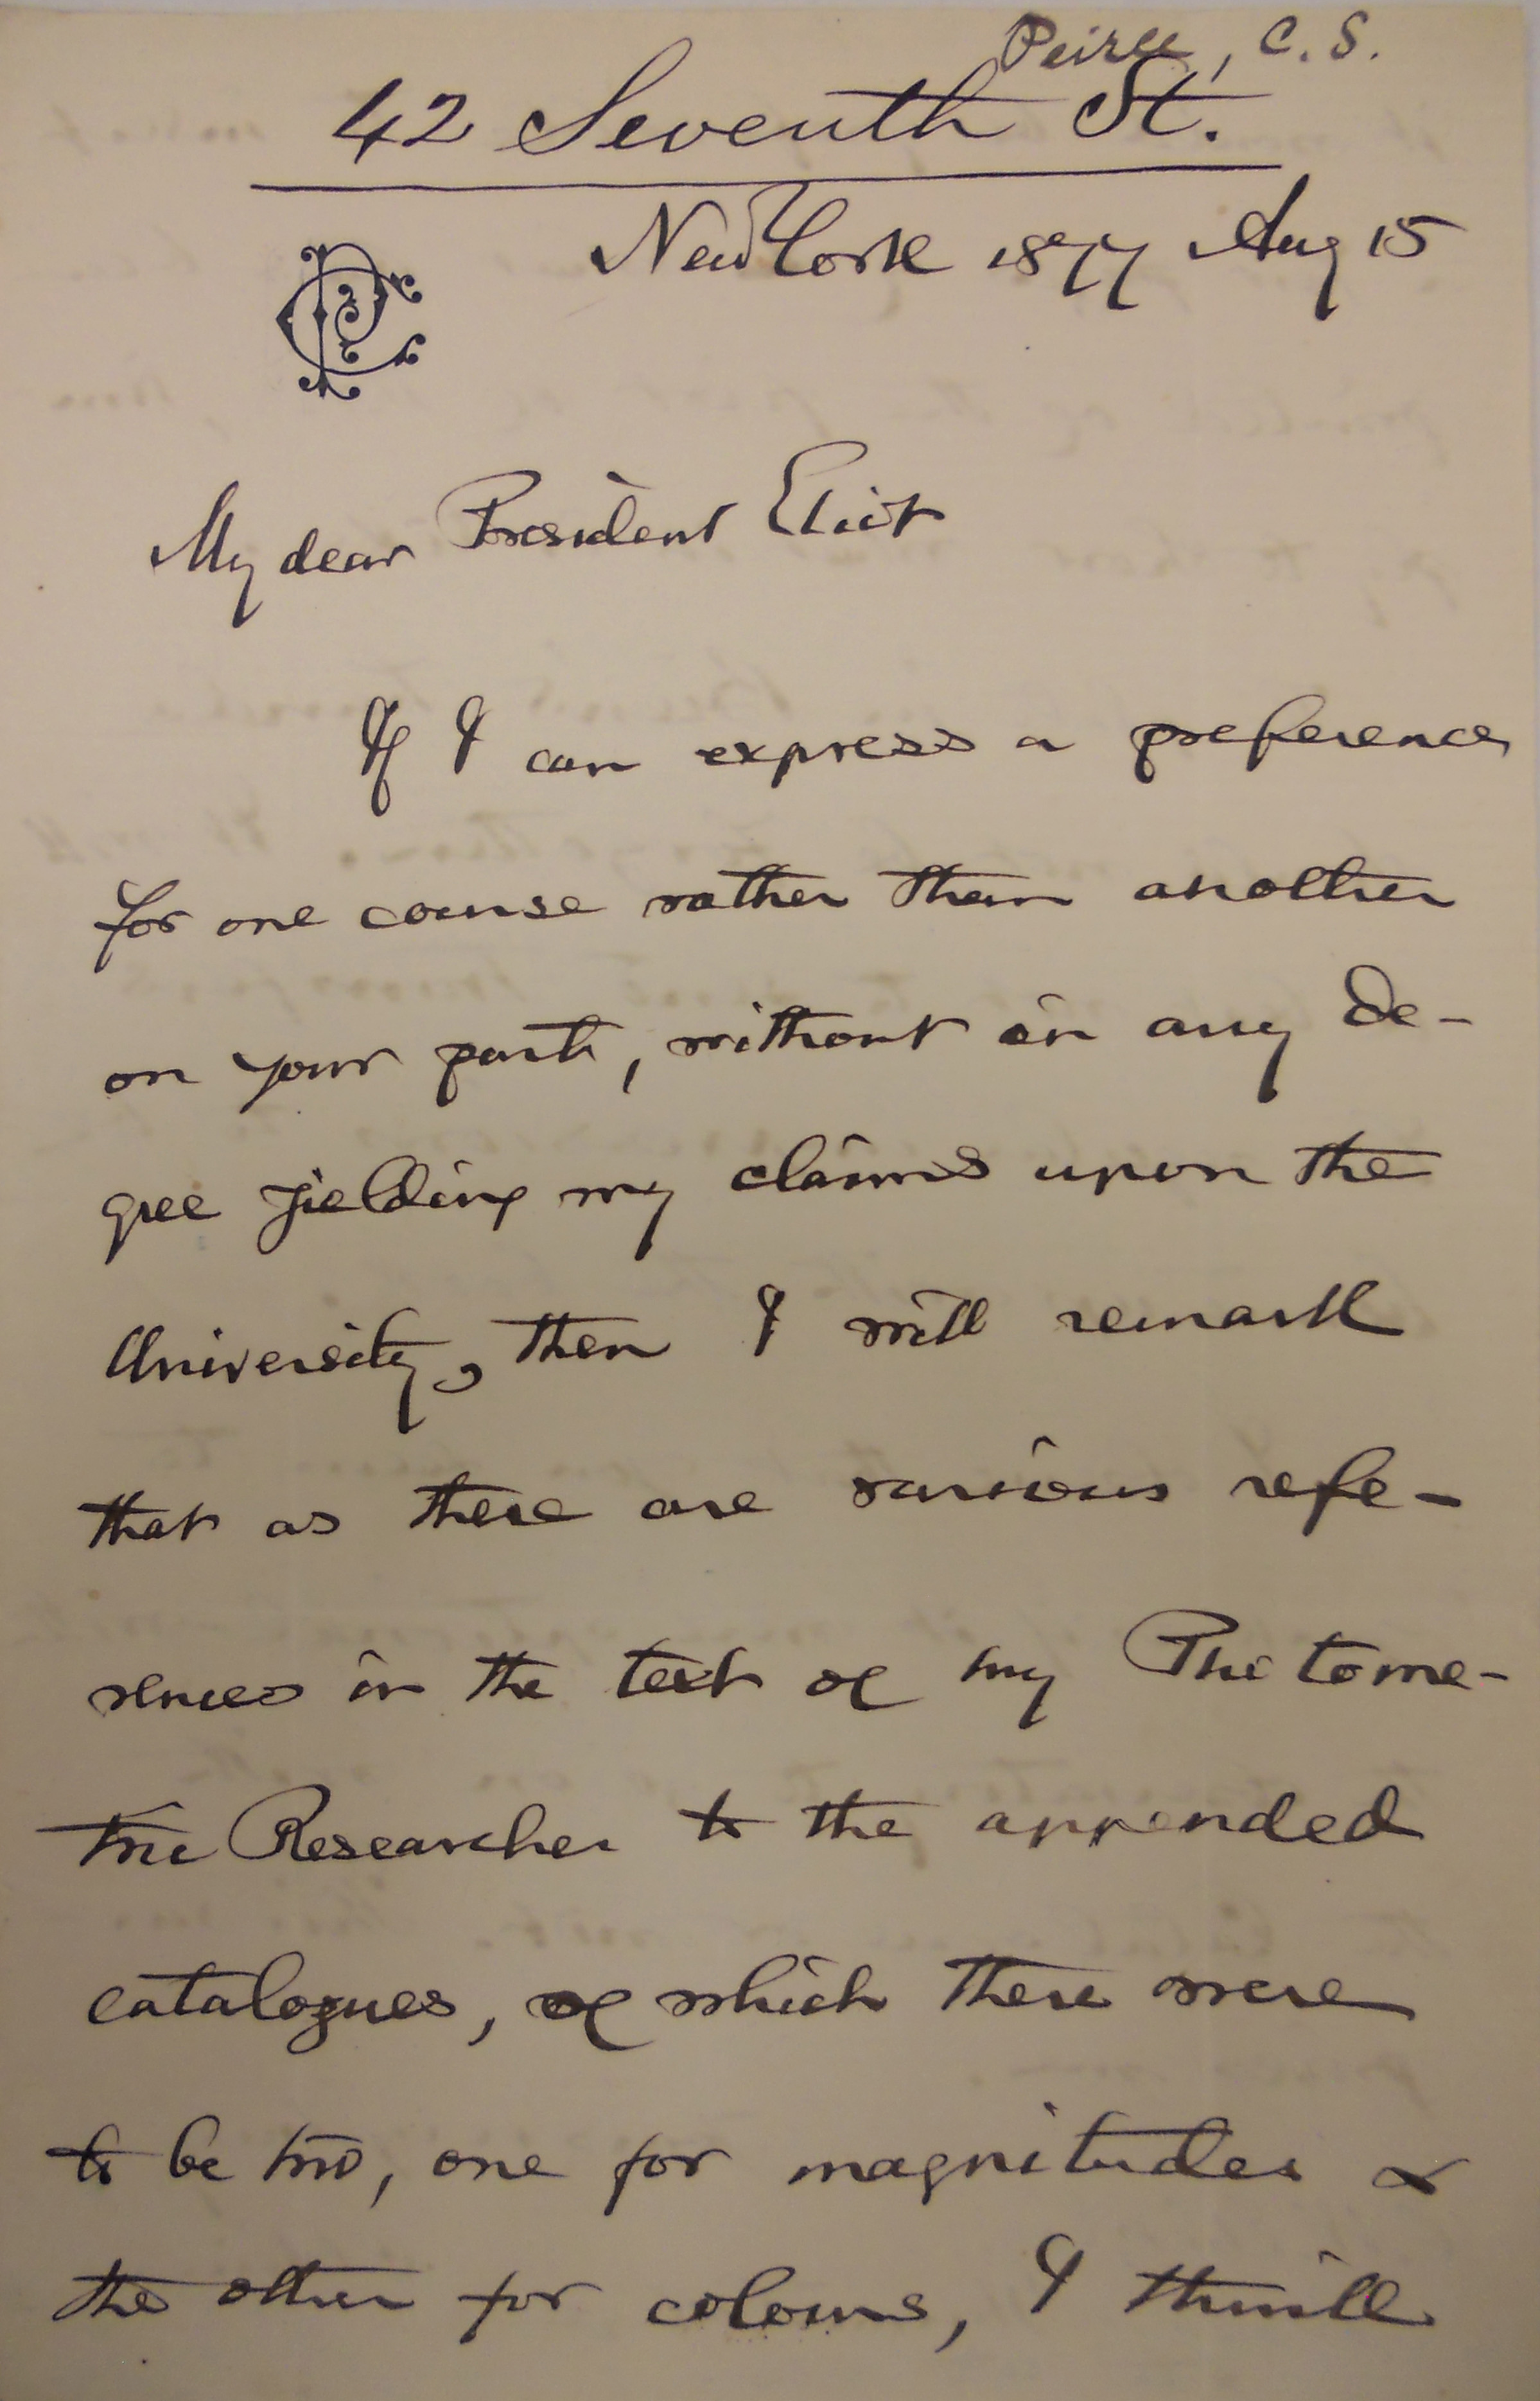 Peirce, C. S.
42 Seventh St.
New York 1877 Aug 15
CP
My dear President Eliot
If I can express a preference
for one course rather than another
on your part, without in any de-
gree yielding my claims upon the
University, then I will remark
that as there are various refe-
rences in the text of my Photome-
tric Researches to the appended
catalogues, of which there were
to be two, one for magnitudes &
the other for colours, I think